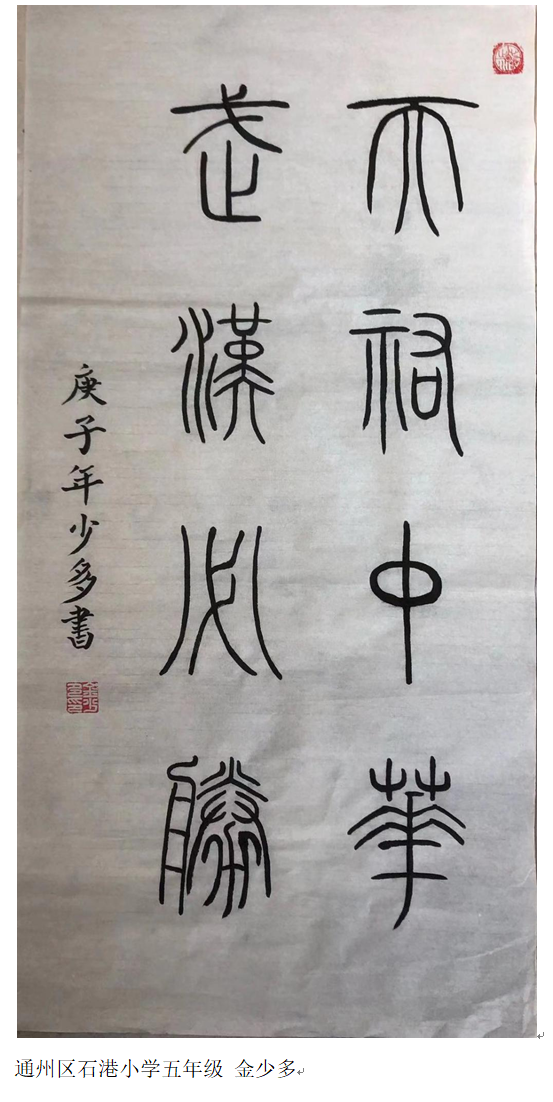 天祐中華
武漢必勝
庚子年少多書
通州区石港小学五年级 金少多